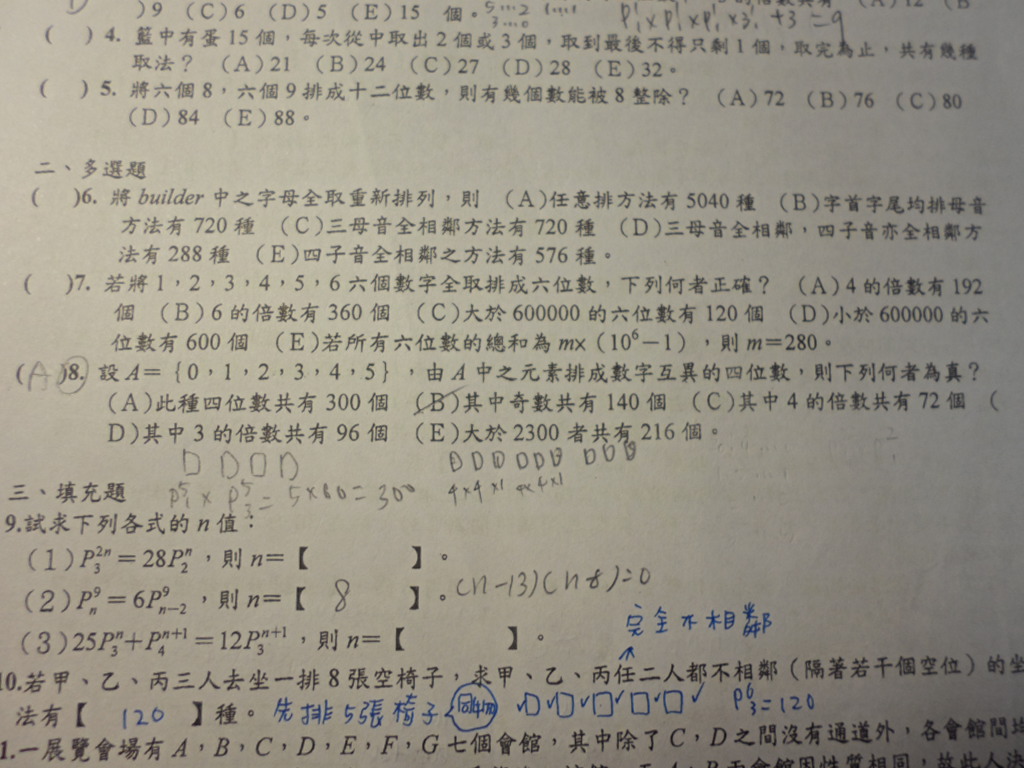 )9 (C)6 (D)5 (E)15 個。 5…2 3…0
P₁¹×P₁¹×P₁¹×3! +3 =9
( ) 4. 籃中有蛋15個,每次從中取出2個或3個,取到最後不得只剩1個,取完為止,共有幾種
取法? (A)21 (B)24 (C)27 (D)28 (E)32。
( ) 5. 將六個8,六個9排成十二位數,則有幾個數能被8整除? (A)72 (B)76 (C)80
(D)84 (E)88。
二、多選題
( )6. 將builder中之字母全取重新排列,則 (A)任意排方法有5040種 (B)字首字尾均排母音
方法有720種 (C)三母音全相鄰方法有720種 (D)三母音全相鄰,四子音亦全相鄰方
法有288種 (E)四子音全相鄰之方法有576種。
( )7. 若將1,2,3,4,5,6六個數字全取排成六位數,下列何者正確? (A)4的倍數有192
個 (B)6的倍數有360個 (C)大於600000的六位數有120個 (D)小於600000的六
位數有600個 (E)若所有六位數的總和為m×(10⁶−1),則m=280。
(A)8. 設A={0,1,2,3,4,5},由A中之元素排成數字互異的四位數,則下列何者為真?
(A)此種四位數共有300個 (B)其中奇數共有140個 (C)其中4的倍數共有72個 (
D)其中3的倍數共有96個 (E)大於2300者共有216個。
三、填充題
P₁⁵×P₃⁵=5×60=300 4×4×1 4×4×1
9.試求下列各式的n值:
(1)P₃²ⁿ=28P₂ⁿ,則n=【 】。
(2)Pₙ⁹=6Pₙ₋₂⁹,則n=【 8 】。(n-13)(n-8)=0
(3)25P₃ⁿ+P₄ⁿ⁺¹=12P₃ⁿ⁺¹,則n=【 】。
完全不相鄰
10.若甲、乙、丙三人去坐一排8張空椅子,求甲、乙、丙任二人都不相鄰(隔著若干個空位)的坐
法有【 120 】種。先排5張椅子 P₃⁶=120
1.一展覽會場有A,B,C,D,E,F,G七個會館,其中除了C,D之間沒有通道外,各會館間均